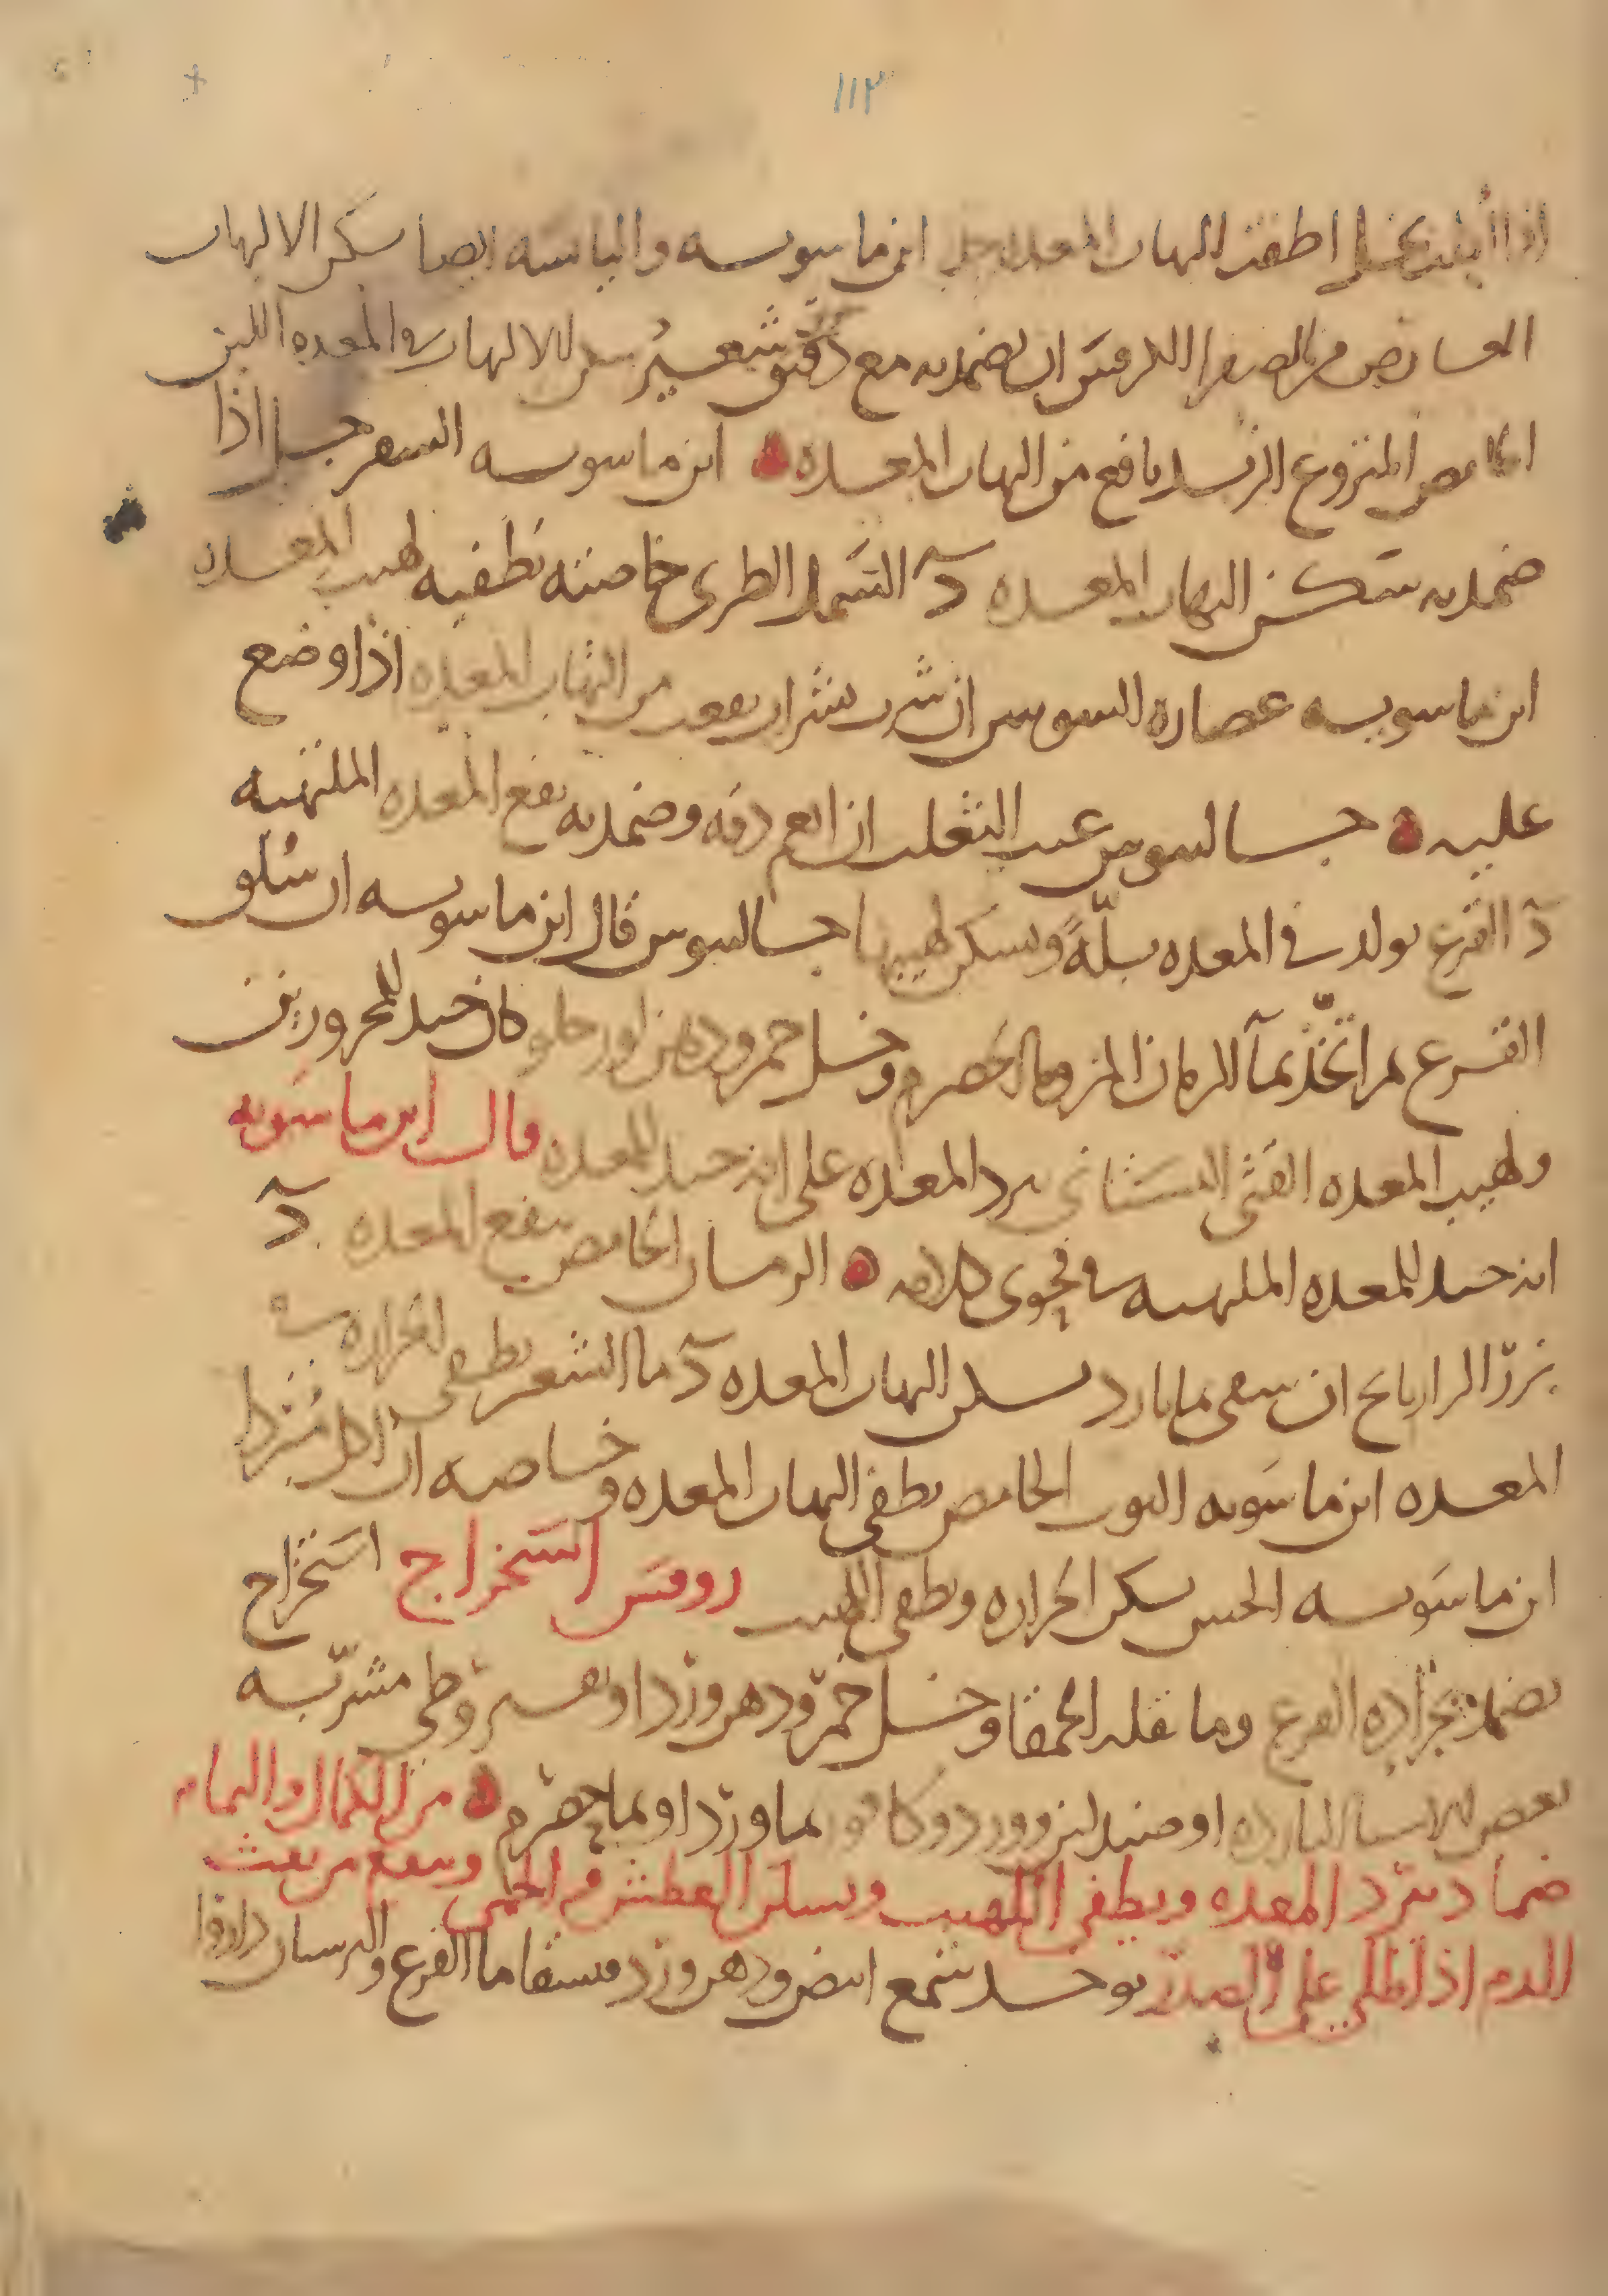 ١١٣
اذا اطفت التهاب المعده ابن ماسويه واليابسه ايضا يسكن الالتهاب
العارض من الصفرا الكرفس ان يضمد به مع دقيق شعير سكن الالتهاب في المعده اللبن
الحامض المنزوع الزبد نافع من التهاب المعده ابن ماسويه السفرجل اذا
ضمد به سكن التهاب المعده د السمك الطرى خاصته تطفيه لهيب المعده
ابن ماسويه عصاره السوس ان شرب بشراب نفعت من التهاب المعده اذا وضع
عليه جالينوس عنب الثعلب ان انعم دقه وضمد به نفع المعده الملتهبه
د القرع يولد في المعده بلّةً ويسكن لهيبها جالينوس قال ابن ماسويه ان سلق
القرع ثم اتخذ بمآ الرمان المز وما الحصرم وخل خمر ودهن لوز حلو كان جيد للمحرورين
ولهيب المعده القثى البستانى يبرد المعده على انه جيد للمعده قال ابن ماسويه
انه جيد للمعده الملتهبه في فحوى كلامه الرمان الحامض ينفع المعده د
بزر الرازيانج ان سقى بما بارد سكن التهاب المعده د ما الشعير يطفى الحراره في
المعده ابن ماسويه التوت الحامض يطفى التهاب المعده وخاصه ان اكل مبردا
ابن ماسويه الخس يسكن الحراره ويطفى اللهيب روفس استخراج استخراج
يضمد بجراده القرع وما بقله الحمقا وخل خمر ودهن ورد او بقيروطى مشربه
بعض الاشيا البارده او صندلين وورد وكافور بما ورد او بما حصرم من الكمال والتمام
ضماد يبرد المعده ويطفى اللهيب ويسكن العطش في الحمى وينفع من نفث
الدم اذا طلى على الصدر يوخذ شمع ابيض ودهن ورد ما القرع